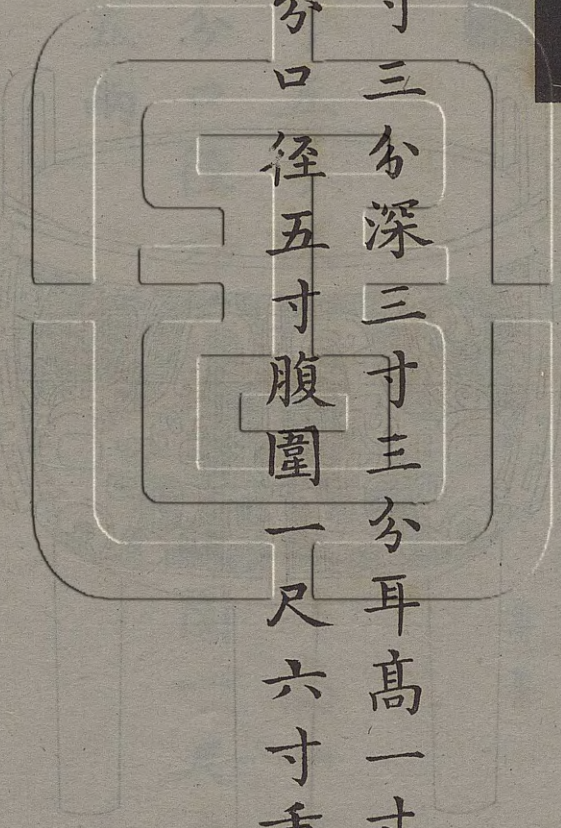 寸三分深三寸三分耳髙一寸
分口徑五寸腹圍一尺六寸重